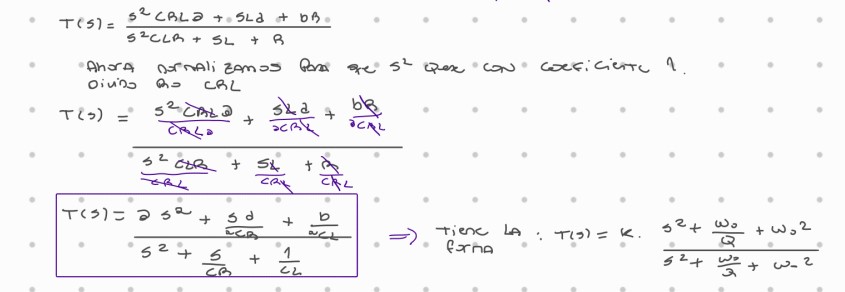 T(s) = (s² CRLa + sLd + bR) / (s² CLR + sL + R)
Ahora normalizamos para que s² quede con coeficiente 1.
Divido por CRL
T(s) = (s² CRLa / CRLa + sLd / aCRL + bR / aCRL) / (s² CLR / CRL + sL / CRL + R / CRL)
T(s) = (a s² + sd / aCR + b / aCL) / (s² + s / CR + 1 / CL) ⇒ Tiene la forma : T(s) = K. (s² + ω₀/Q + ω₀²) / (s² + ω₀/Q + ω₀²)